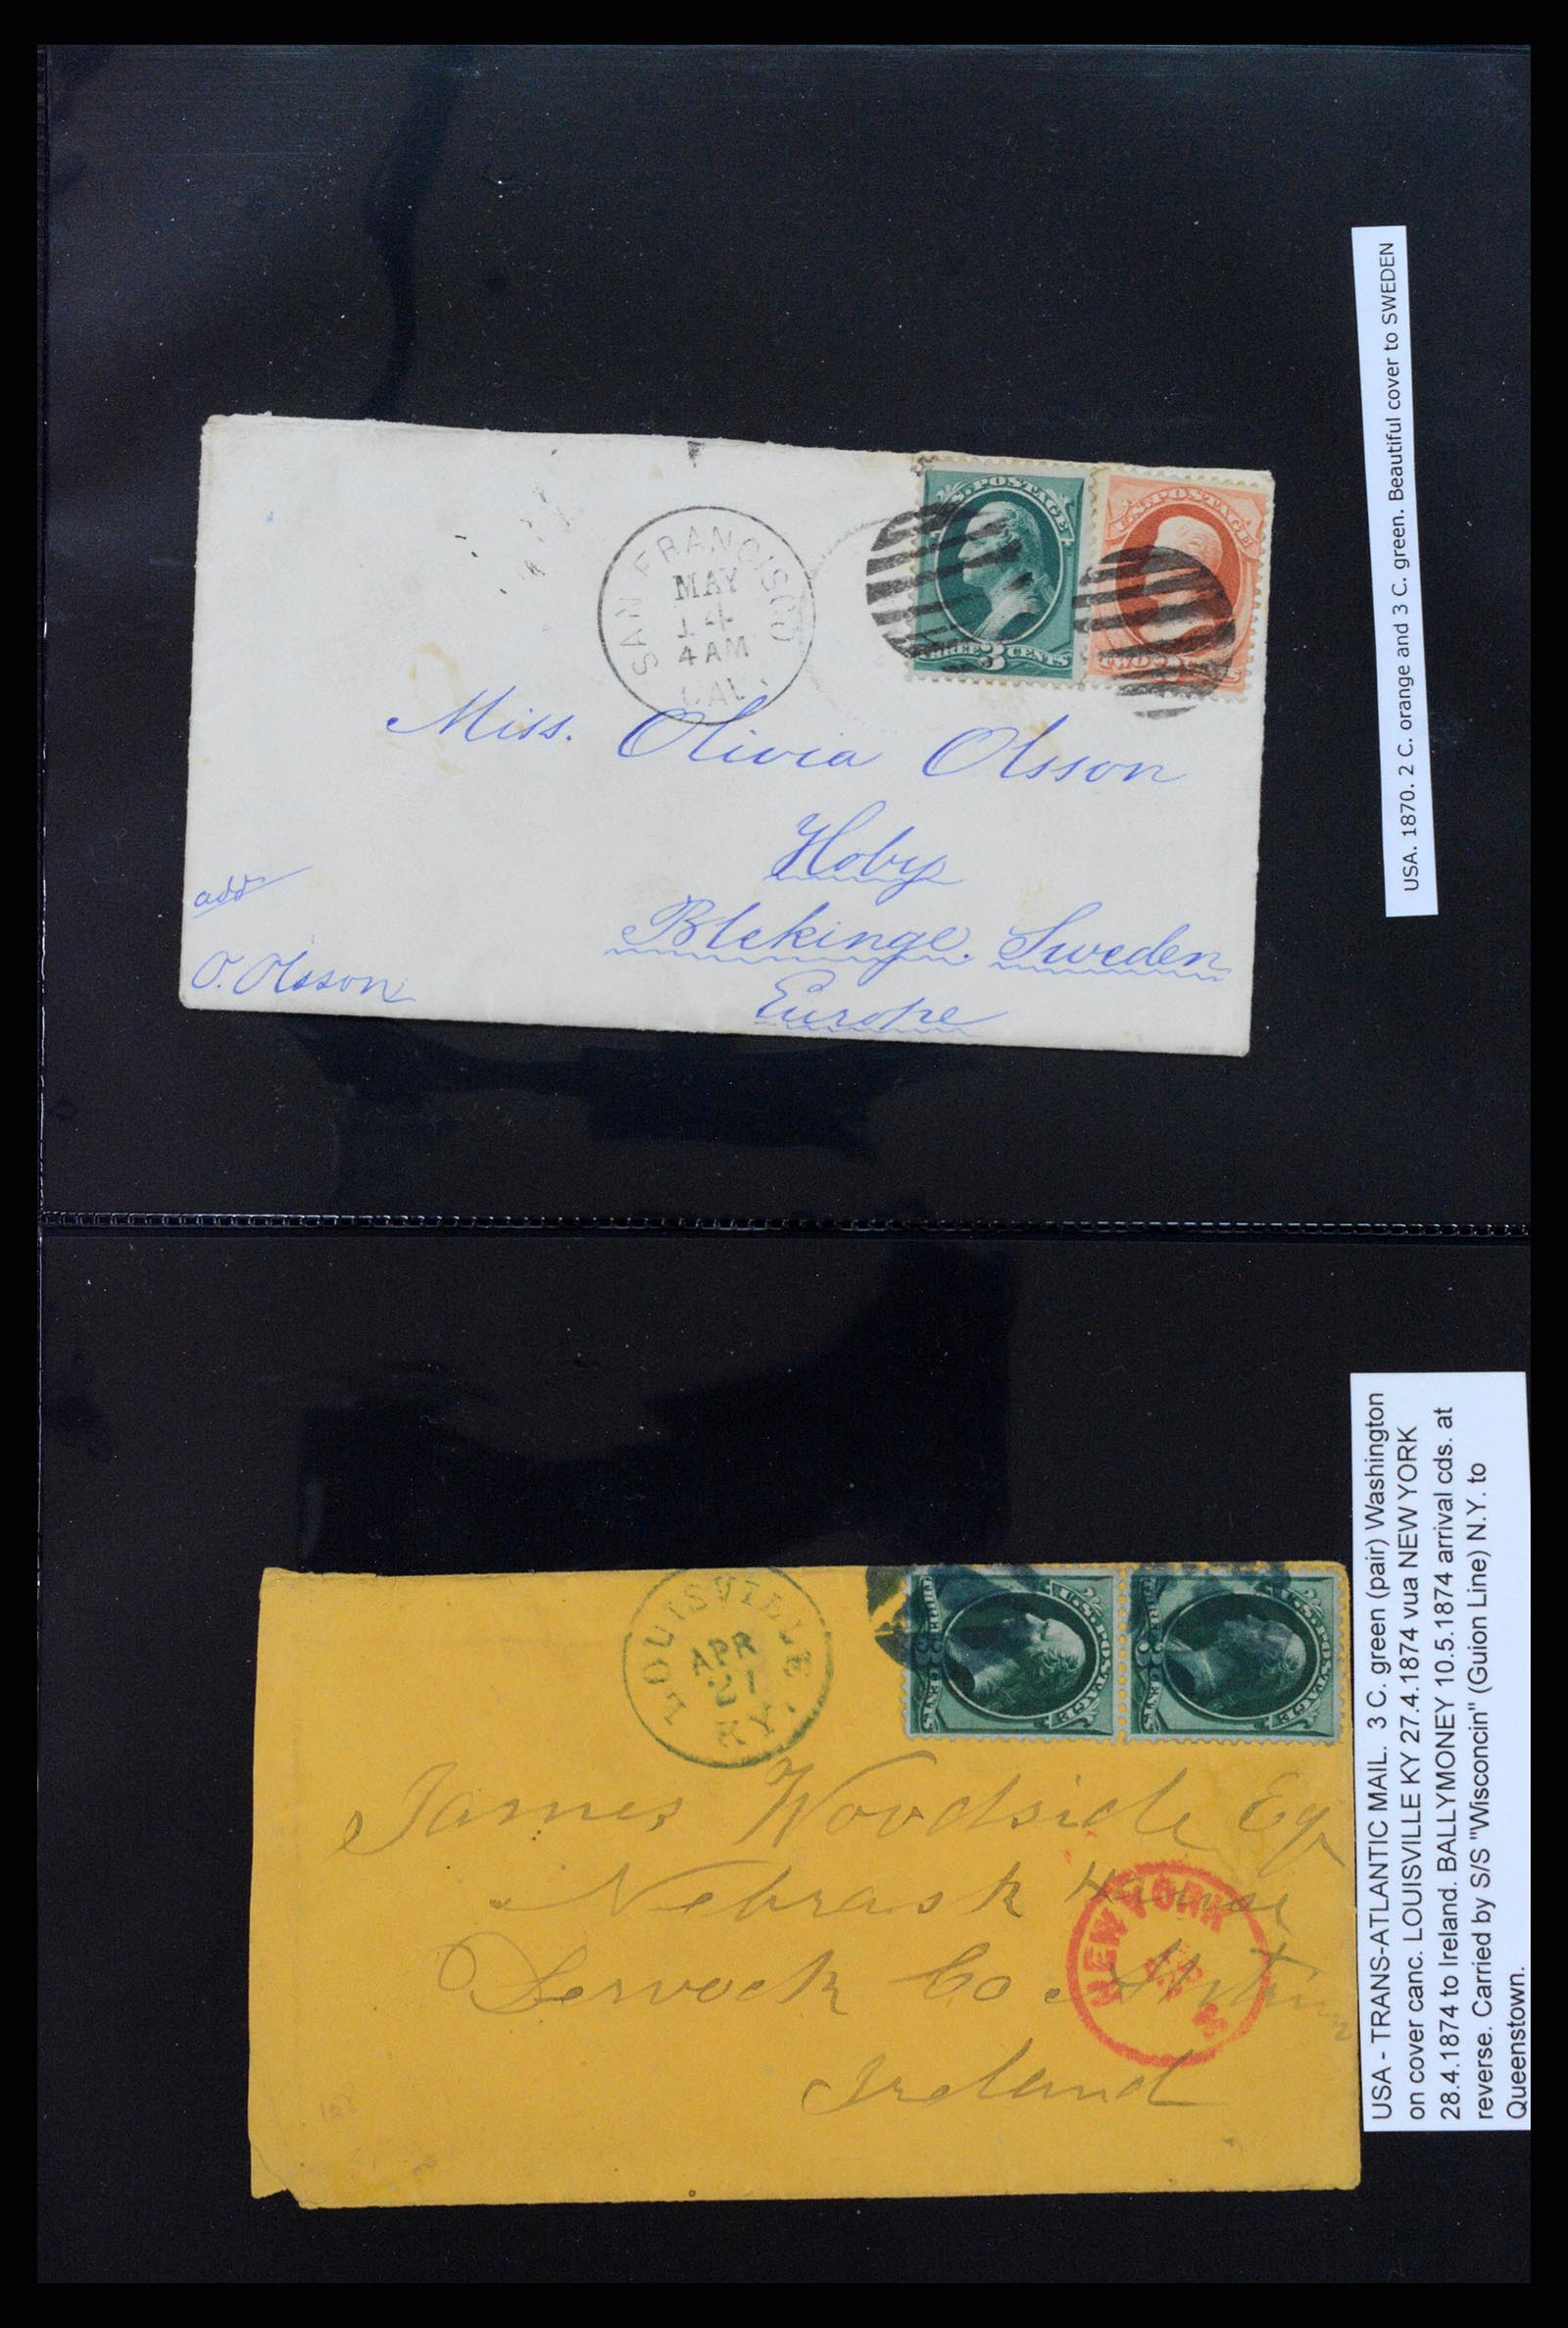 SAN FRANCISCO
MAY
14
4 AM
CAL.
U.S. POSTAGE
THREE 3 CENTS
U.S. POSTAGE
TWO 2
Miss. Olivia Olsson
Hoby
Blekinge. Sweden
Europe
add
O. Olsson
USA. 1870. 2 C. orange and 3 C. green. Beautiful cover to SWEDEN
LOUISVILLE
APR
27
KY.
U.S. POSTAGE
THREE 3 CENTS
U.S. POSTAGE
3 CENTS
James Woodside Eq
Nebrask House
Dervock Co Antrim
Ireland
NEW YORK
USA - TRANS-ATLANTIC MAIL. 3 C. green (pair) Washington
on cover canc. LOUISVILLE KY 27.4.1874 vua NEW YORK
28.4.1874 to Ireland. BALLYMONEY 10.5.1874 arrival cds. at
reverse. Carried by S/S "Wisconcin" (Guion Line) N.Y. to
Queenstown.